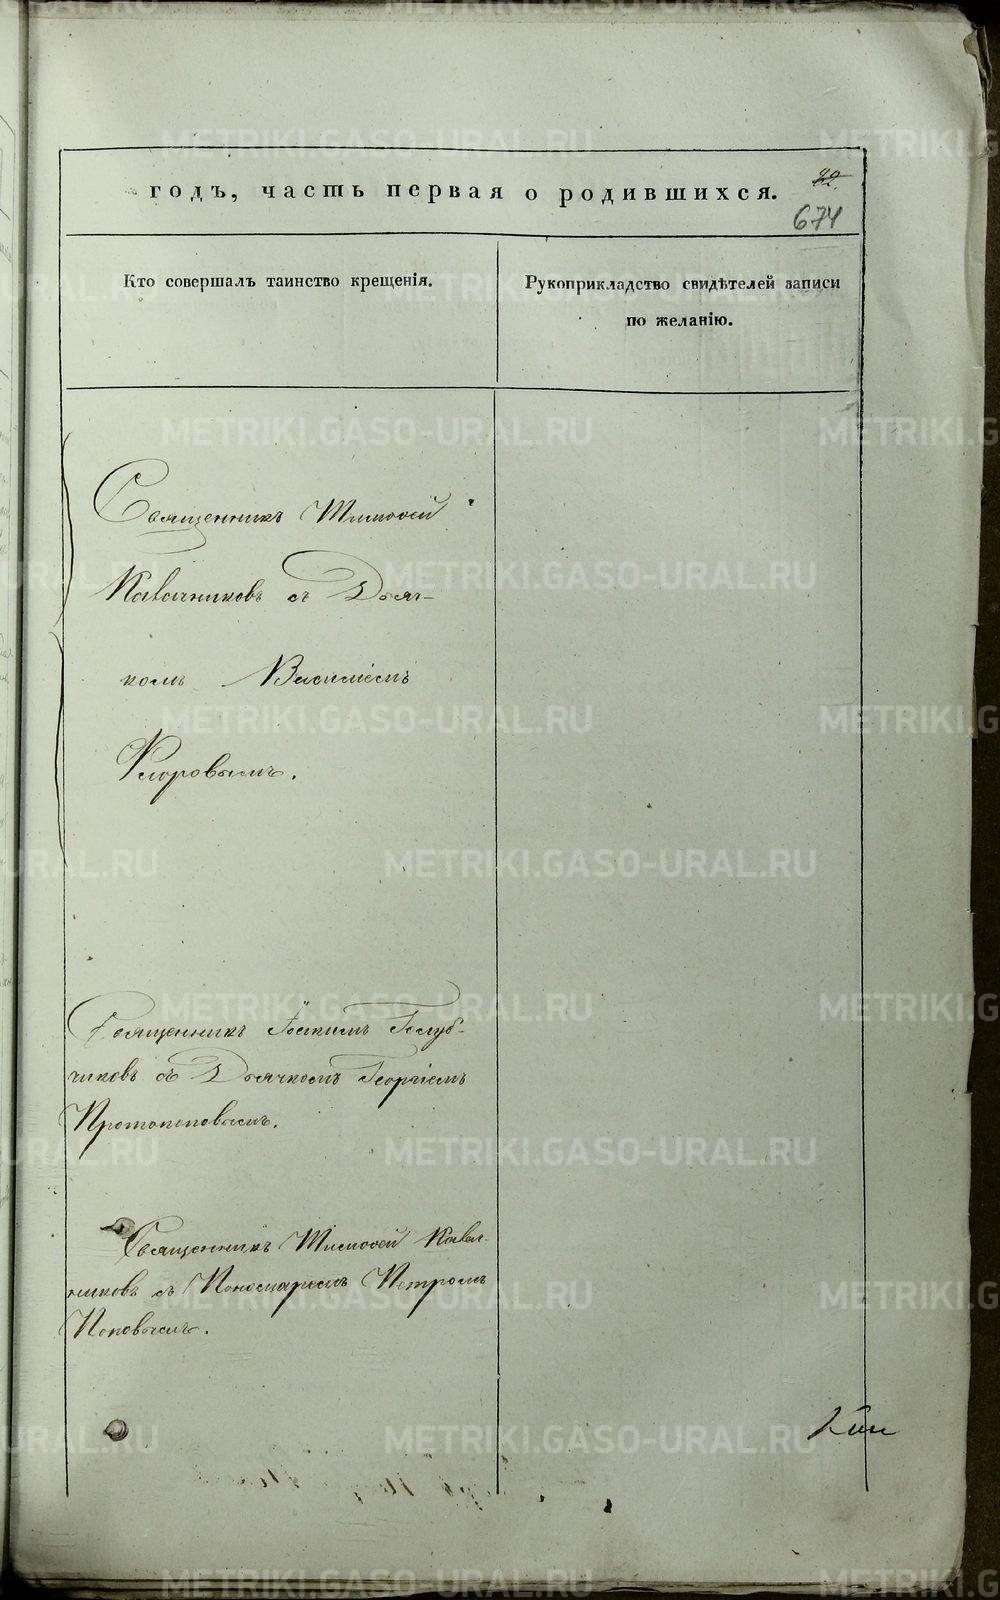 годъ, часть первая о родившихся.
674
Кто совершалъ таинство крещенія.
Рукоприкладство свидѣтелей записи
по желанію.
Священникъ Тимоѳей
Кавачниковъ съ Дьяч-
комъ Василіемъ
Флоровымъ.
Священникъ Іоакимъ Голуб-
чиковъ съ Дьячкомъ Георгіемъ
Протопоповымъ.
Священникъ Тимоѳей
съ Пономаремъ Петромъ
Поповымъ.
METRIKI.GASO-URAL.RU